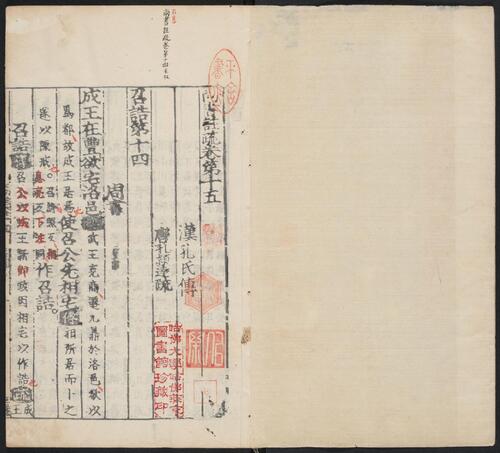 尚書註疏卷第十五
漢孔氏傳
唐孔穎達疏
召誥第十四 周書
成王在豐欲宅洛邑武王克商遷九鼎於洛邑欲以
爲都故成王居焉使召公先相宅相所居而卜之
遂以陳戒作召誥
召誥召公以成王新即政因相宅以作誥
成王
哈佛大學哈佛燕京
圖書館珍藏印